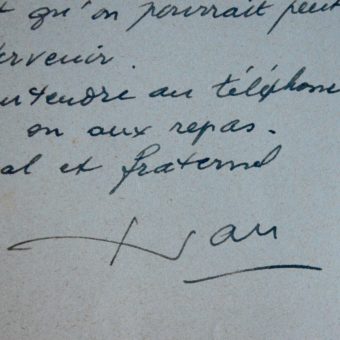 qu'on pourrait peut
ervenir.
entendre au téléphone
on aux repas.
al et fraternel